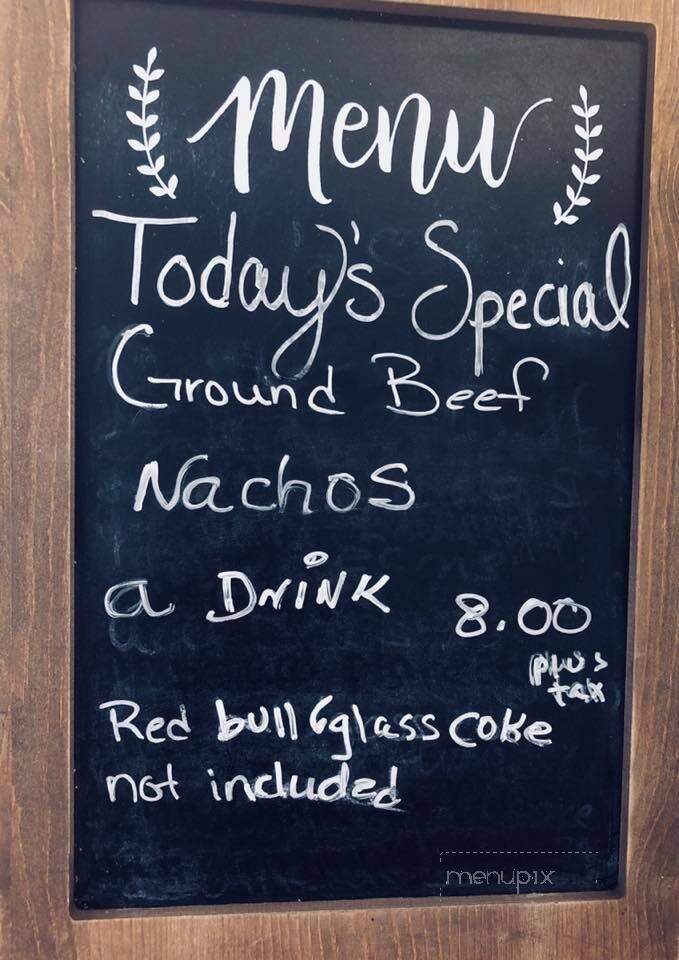 Menu
Today's Special
Ground Beef
Nachos
a DRINK 8.00
plus
tax
Red bull & glass coke
not included
menupix